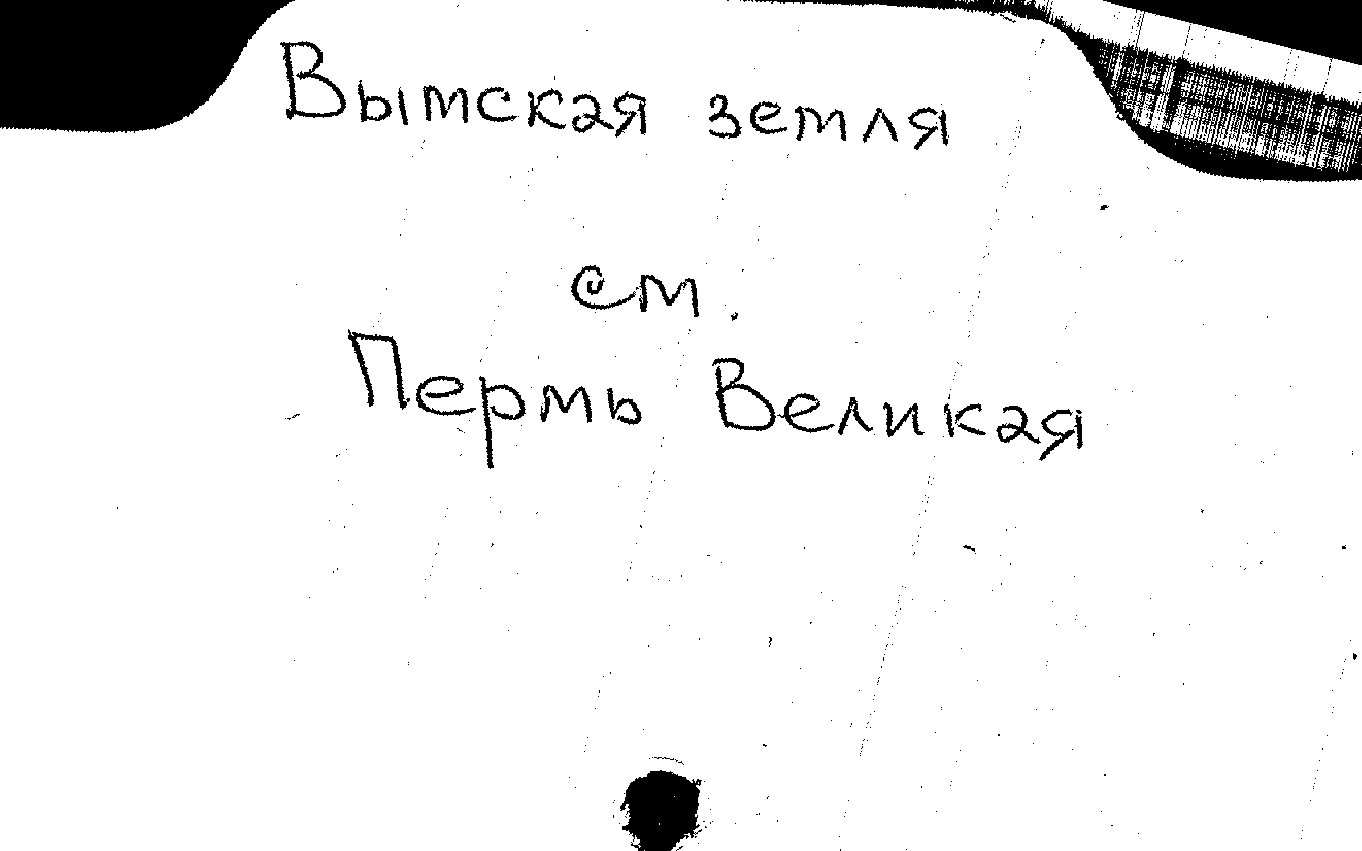 Вымская земля
см.
Пермь Великая